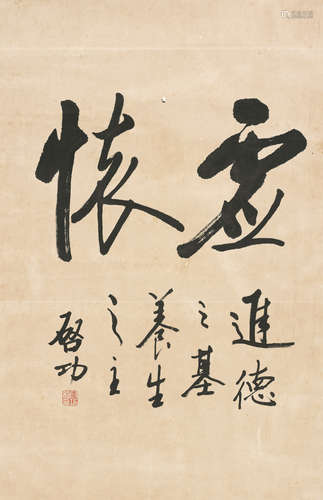 虚懷
進德
之基
養生
之主
啓功